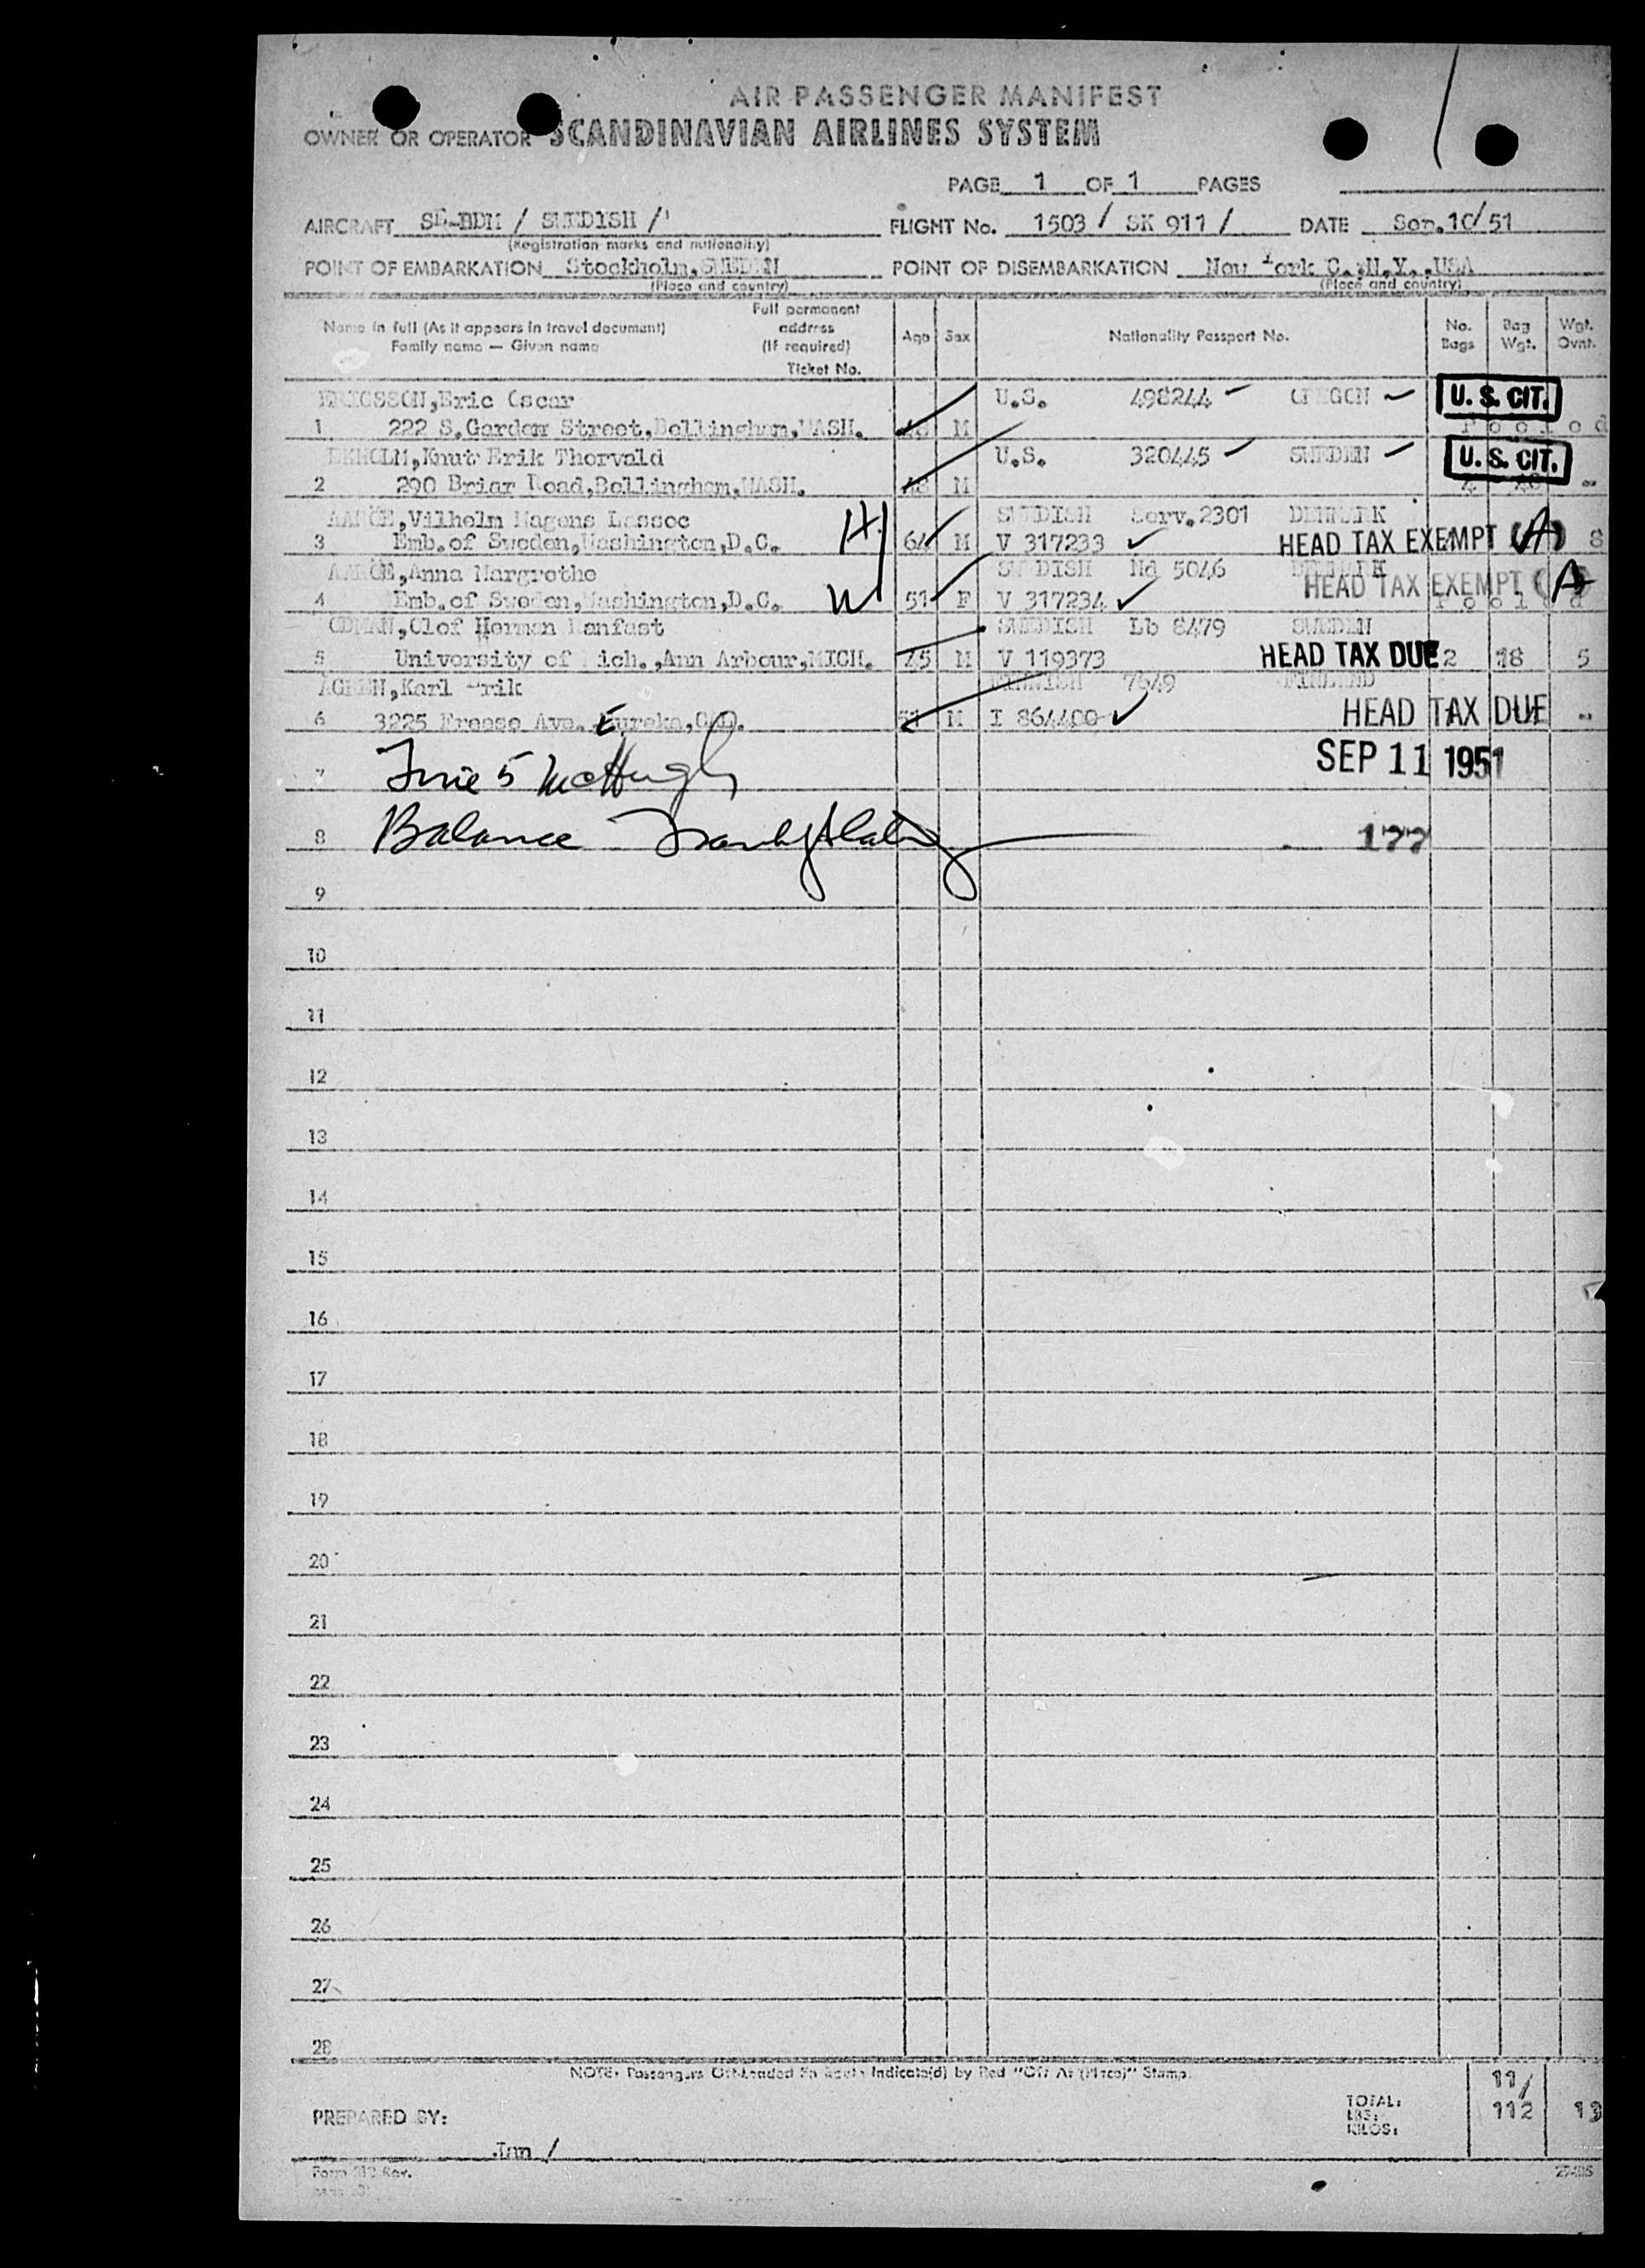 AIR PASSENGER MANIFEST
OWNER OR OPERATOR SCANDINAVIAN AIRLINES SYSTEM
PAGE 1 OF 1 PAGES
AIRCRAFT SE-BDM / SWEDISH / FLIGHT No. 1503 / SK 911 / DATE Sep.10/51
(Registration marks and nationality)
POINT OF EMBARKATION Stockholm, SWEDEN POINT OF DISEMBARKATION New York C.,N.Y.,USA
(Place and country) (Place and country)
Name in full (As it appears in travel document)
Family name — Given name
Full permanent address (If required)
Ticket No.
Age Sex Nationality Passport No. No. Bags Bag Wgt. Wgt. Ovnt.
ERICSSON,Eric Oscar U.S. 498244 OREGON U. S. CIT.
1 222 S.Garden Street,Bellingham,WASH. M Pooled
EKHOLM,Knut Erik Thorvald U.S. 320445 SWEDEN U. S. CIT.
2 290 Briar Road,Bellingham,WASH. 48 M
AAROE,Vilhelm Magens Lassoe H SWEDISH Serv.2301 DENMARK
3 Emb.of Sweden,Washington,D.C. 64 M V 317233 HEAD TAX EXEMPT (A) 8
AAROE,Anna Margrethe W SWEDISH Nd 5046 DENMARK
4 Emb.of Sweden,Washington,D.C. 51 F V 317234 HEAD TAX EXEMPT (A) Pooled
ODMAN,Olof Herman Manfast SWEDISH Lb 8479 SWEDEN
5 University of Mich.,Ann Arbour,MICH. 45 M V 119373 HEAD TAX DUE 2 18 5
AGREN,Karl Erik FINNISH 7649 FINLAND
6 3225 Freese Ave. Eureka,CAL. 51 M I 864400 HEAD TAX DUE
7 5 McHugh SEP 11 1951
8 Balance 177
9
10
11
12
13
14
15
16
17
18
19
20
21
22
23
24
25
26
27
28
NOTE: Passengers Off-Loaded En Route Indicate(d) by Red "Off At (Place)" Stamp.
PREPARED BY:
TOTAL: 11/
LBS: 112 13
KILOS:
Jnn /
Form 212 Rev.